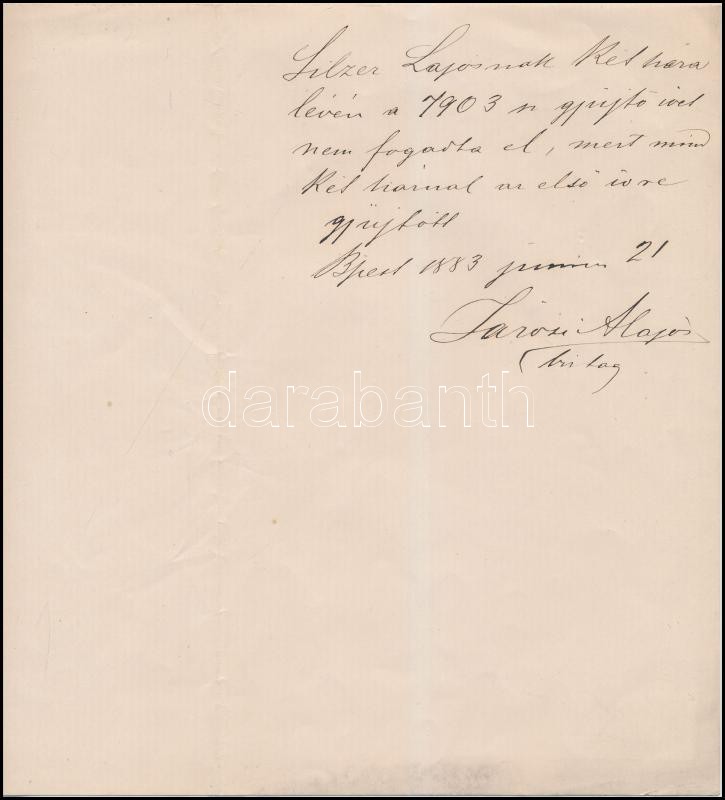 Silzer Lajosnak két háza
lévén a 7903 n gyüjtő ivet
nem fogadta el, mert mind
két háznál az első ivre
gyüjtött
Bpest 1883 junius 21
Járosi Alajos
biz tag
darabanth